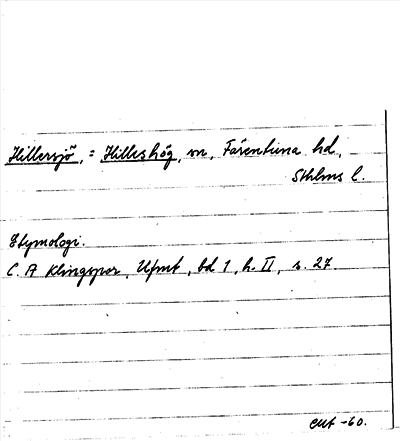 Hillersjö, = Hilleshög, sn, Färentuna hd,
Sthlms l.
Etymologi.
C. A Klingspor, Ufmt, bd 1, h. II, s. 27.
-60.